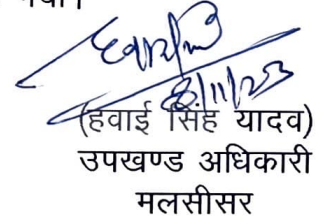 8/11/23
(हवाई सिंह यादव)
उपखण्ड अधिकारी
मलसीसर